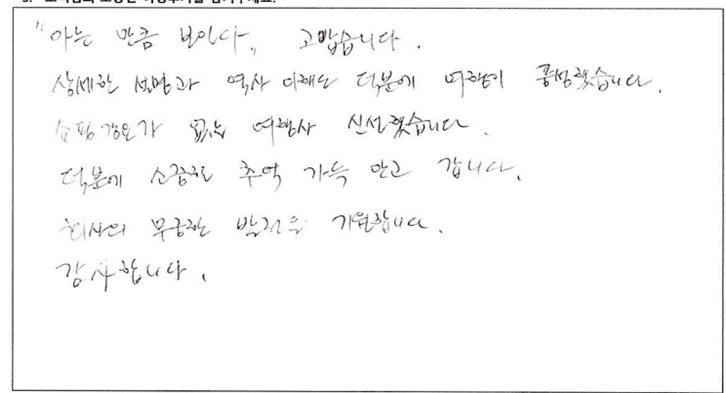 "아는 만큼 보인다" 고맙습니다.
상세한 설명과 역사 이해도 덕분에 여행이 풍성했습니다.
쇼핑강요가 없는 여행사 신선했습니다.
덕분에 소중한 추억 가득 안고 갑니다.
회사의 무궁한 발전을 기원합니다.
감사합니다.